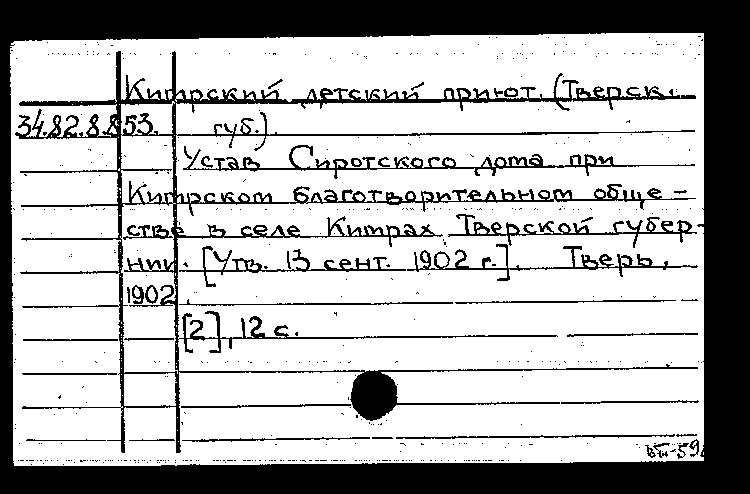 Кимрский детский приют. (Тверск.
34.82.8.853. губ.).
Устав Сиротского дома при
Кимрском благотворительном обще-
стве в селе Кимрах Тверской губер-
нии. [Утв. 13 сент. 1902 г.]. Тверь,
1902.
[2], 12 с.